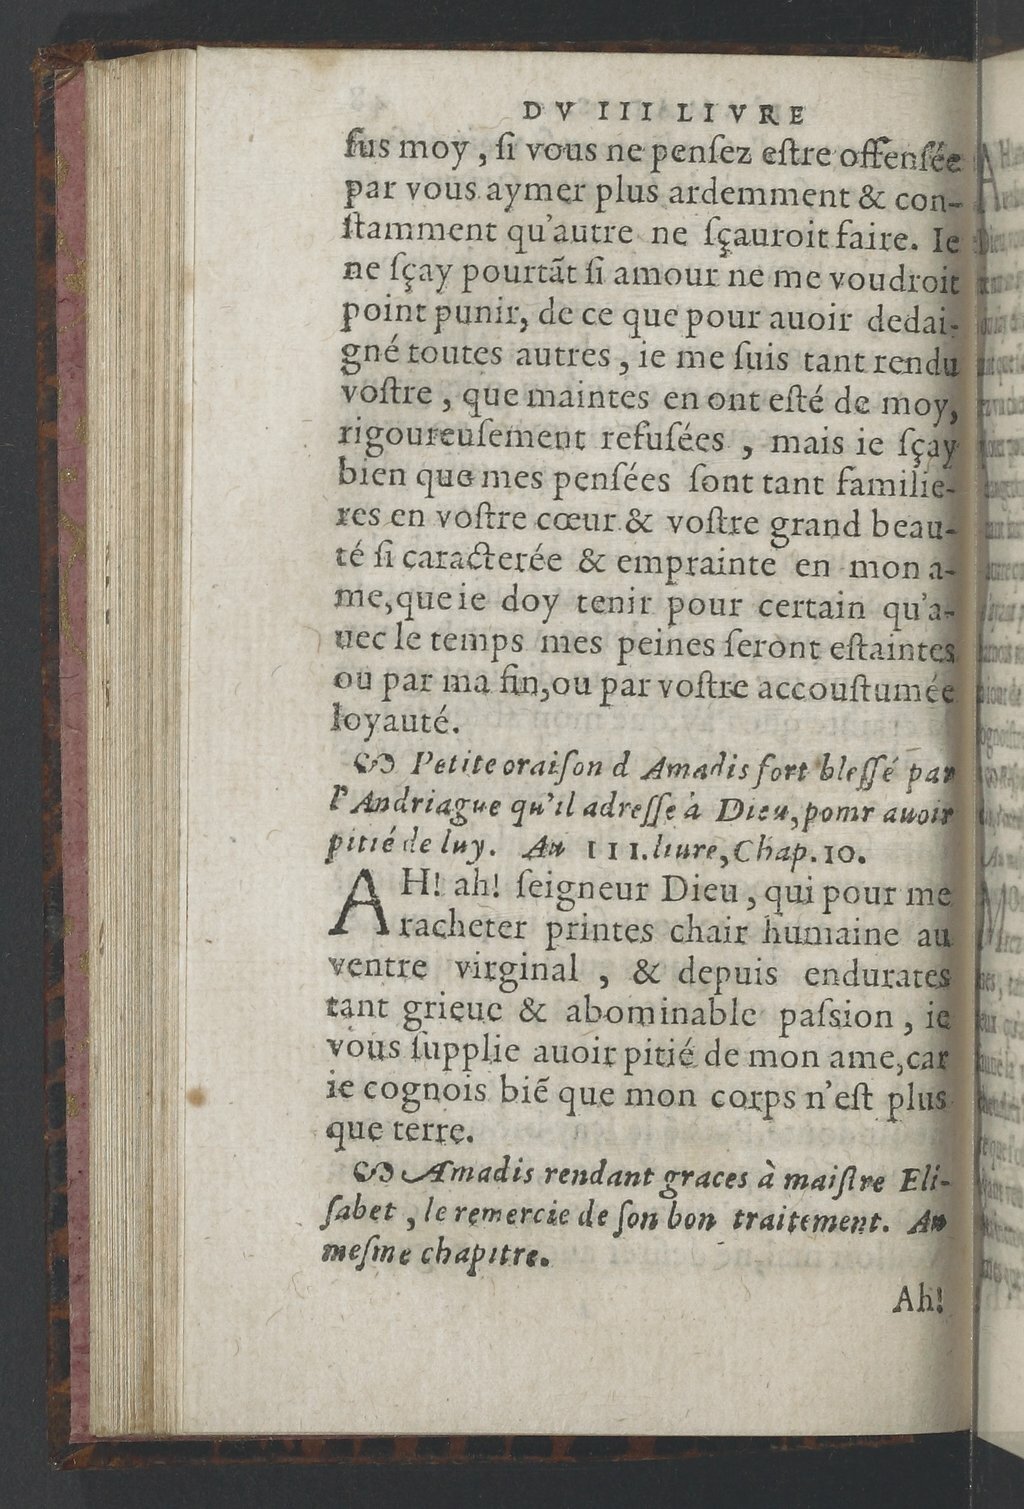 DV III LIVRE
ſus moy, ſi vous ne penſez eſtre offenſée
par vous aymer plus ardemment & con-
ſtamment qu'autre ne ſçauroit faire. Ie
ne ſçay pourtãt ſi amour ne me voudroit
point punir, de ce que pour auoir dedai-
gné toutes autres, ie me ſuis tant rendu
voſtre, que maintes en ont eſté de moy,
rigoureuſement refuſées, mais ie ſçay
bien que mes penſées ſont tant familie-
res en voſtre cœur & voſtre grand beau-
té ſi caracterée & emprainte en mon a-
me, que ie doy tenir pour certain qu'a-
uec le temps mes peines ſeront eſtaintes
ou par ma fin, ou par voſtre accouſtumée
loyauté.
Petite oraiſon d Amadis fort bleſſé par
l'Andriague qu'il adreſſe à Dieu, pomr auoir
pitié de luy. Au III. liure, Chap. 10.
AH! ah! ſeigneur Dieu, qui pour me
racheter printes chair humaine au
ventre virginal, & depuis endurates
tant grieue & abominable paſsion, ie
vous ſupplie auoir pitié de mon ame, car
ie cognois biẽ que mon corps n'eſt plus
que terre.
Amadis rendant graces à maiſtre Eli-
ſabet, le remercie de ſon bon traitement. Au
meſme chapitre.
Ah!